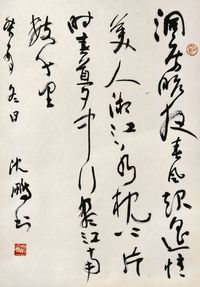 洞房昨夜春风起遥忆
美人湘江水枕上片
时春梦中行尽江南
数千里
冬日
沈鹏书